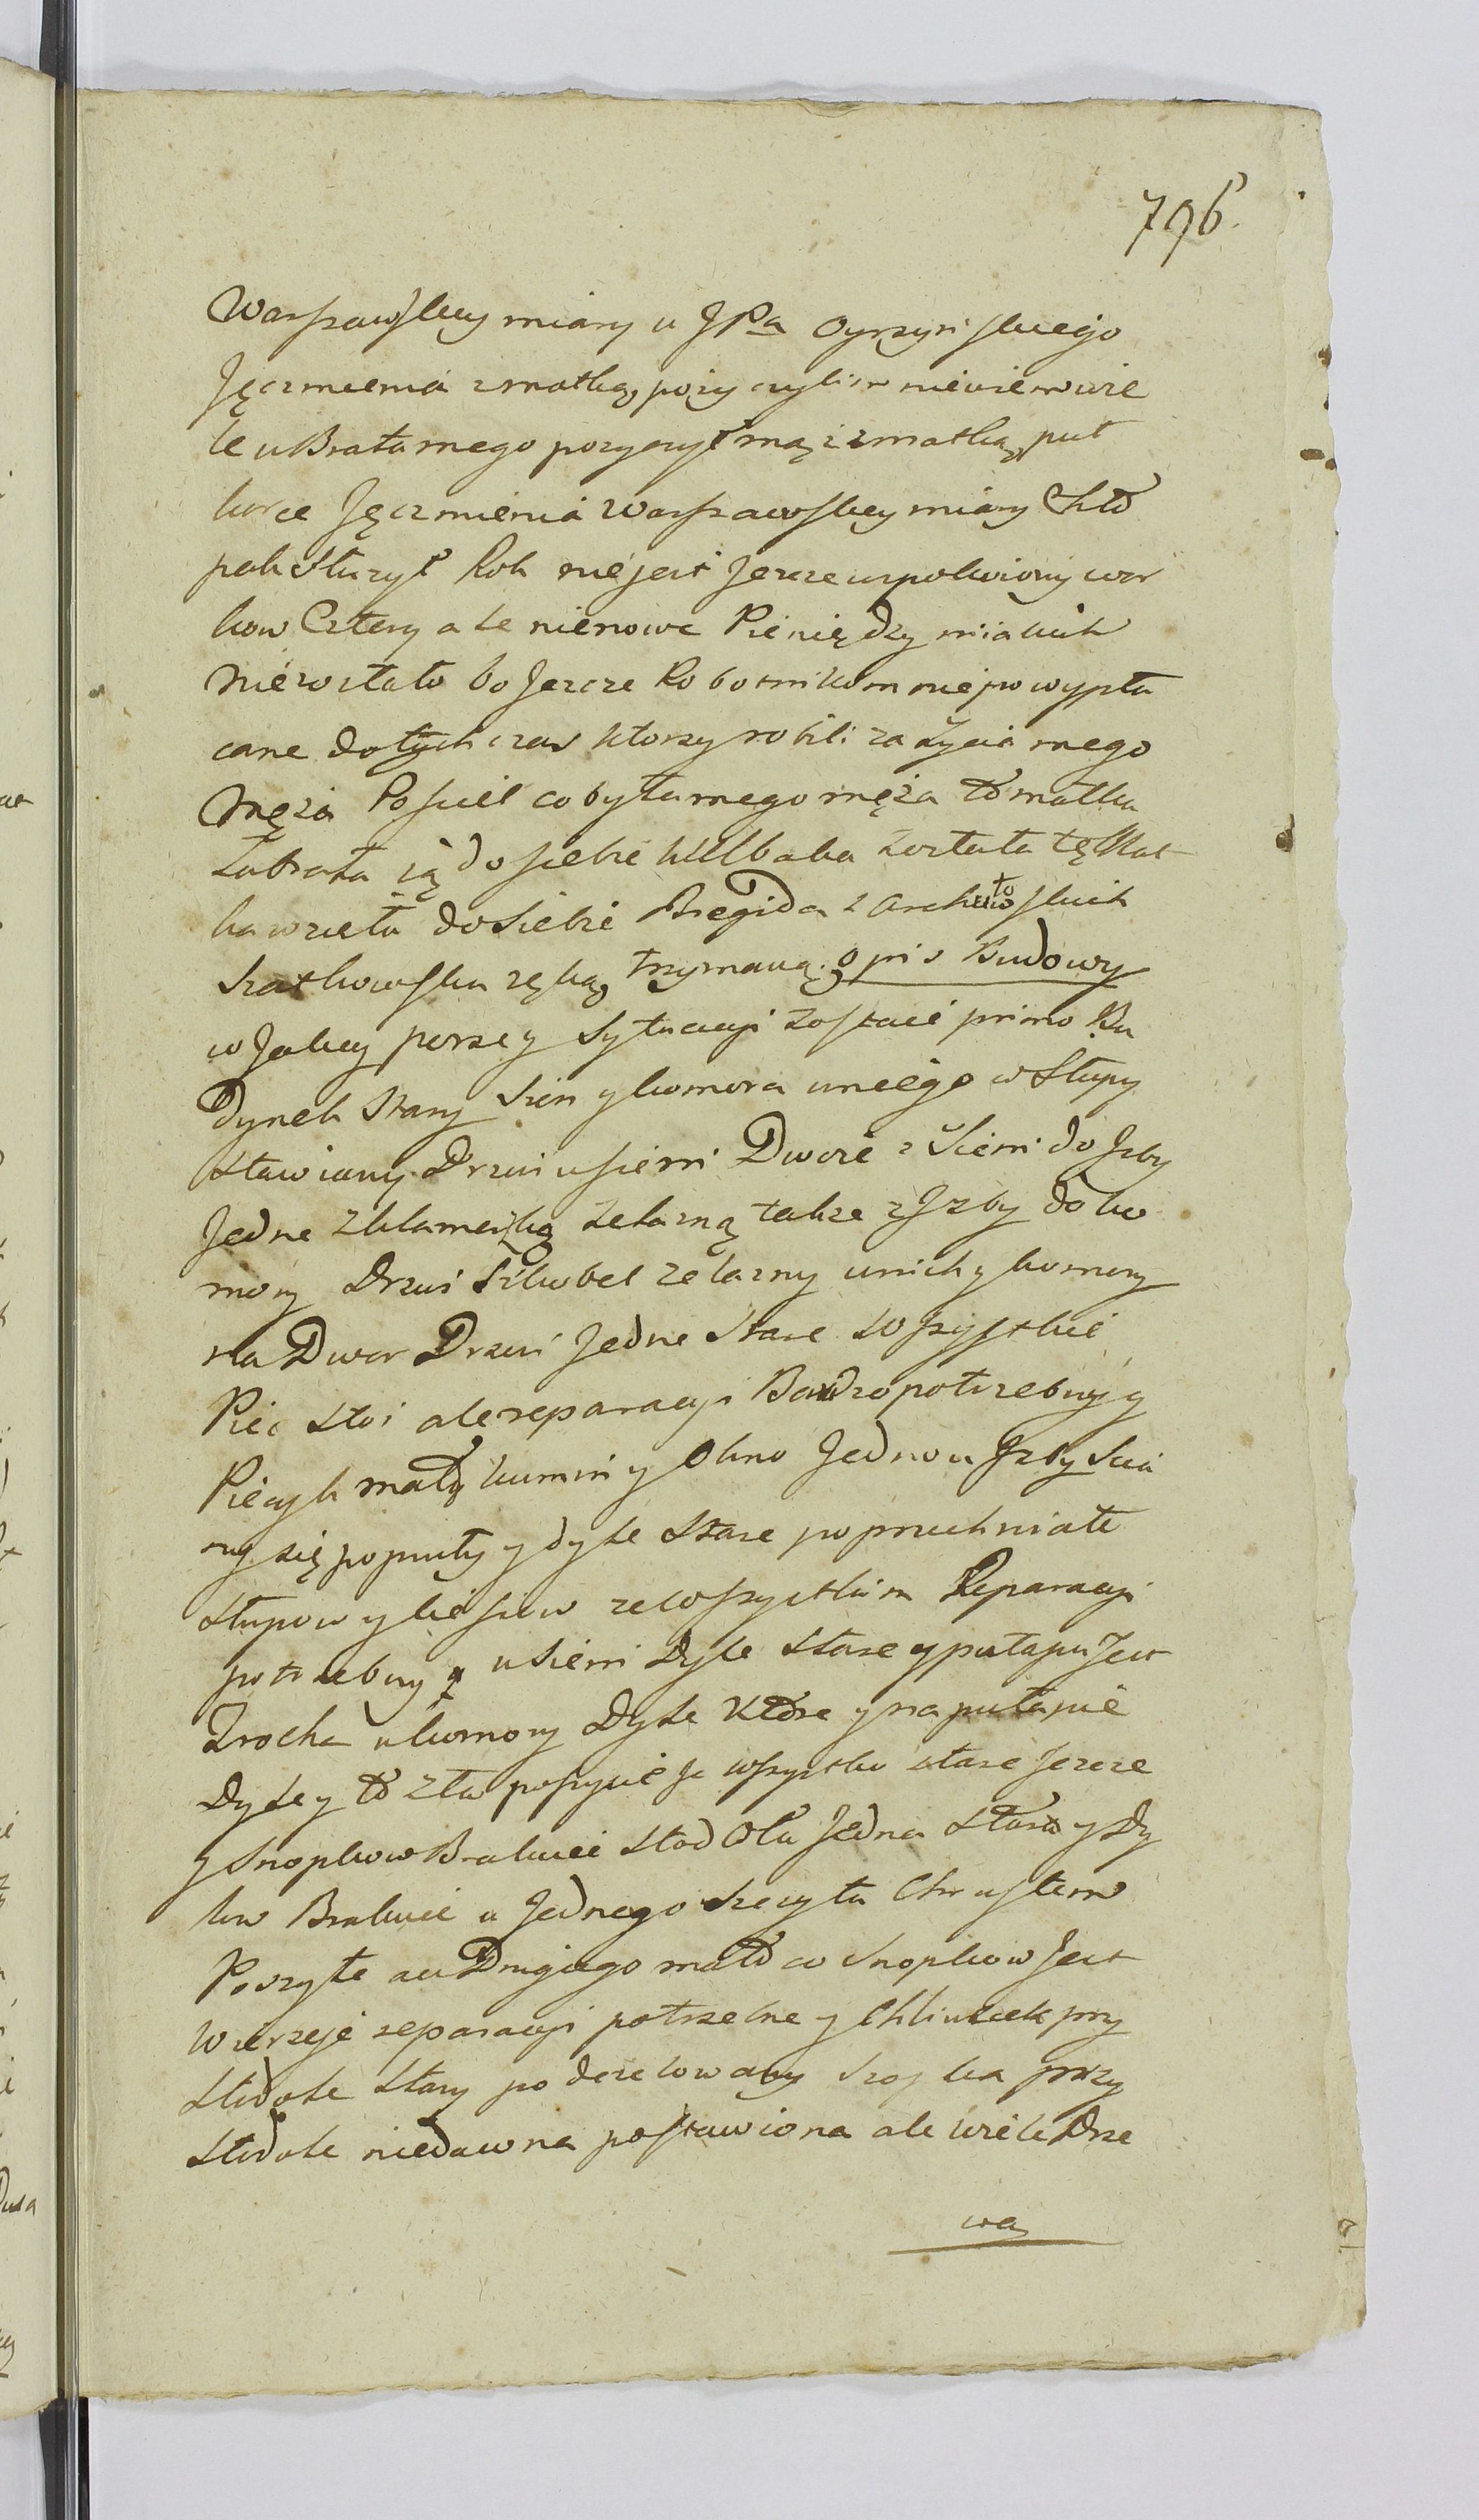 796.
Warszawskey miary u JPa Oyrzyńskiego
Jęczmienia zmatką pożyczylim niewiem wie
le u Brata mego pozyczył mąż zmatką puł
korce Jęczmienia Warszawskey miary Chło
pak Służył Rok nie jest Jescze uspokoiony wor
kow Cztery ale nienowe Pieniędzy miakich
Niezostało bo Jescze Robotnikom nie powypła
cane dotych czas ktorzy robili za Zycia mego
Męża Posciel co była mego męża to matka
Zabrała ią do siebie Kolbaka została tę Mat
ka wzieła do Siebie Bregida z Archutoskich
Szatkowska ręką trzymaną. Opis Budowy
w Jakey persey Sytuacyi Zostaie primo Bu
dynek Stary Sien y komora uneego w Słupy
Stawiany Drzwi u sieni Dwoie z Sieni do Jzby
Jedne z klameczką Zelazną także z Jzby do ko
mory Drzwi Skobel zelazny unich y komory
na Dwor Drzwi Jedne Stare Wszystkie
Piec Stoi ale reparacyi Bardzo potrzebny y
Piecyk mały kumin y Okno Jedno u Jzby Scia
ny się popsuły y dyle Stare poprochniałe
Słupow y kiesiow ze wszystkim Reparacyi
potrzebny y u Sieni Dyle Stare y pułapu Jest
Trocha u komory Dyle Które y na pułapie
Dyle y to zła poszycie Je wszystko stare Jescze
y Snopkow Brakuie Stodoła Jedna Stara y Dy
low Brakuie u Jednego Szczytu Chrustem
Poszyte a u Drugiego mało co Snopkow Jest
Wierzeje reparacyi potrzebne y Chliwek przy
Stodole Stary podezelowany Szopka przy
Stodole niedawna postawiona ale wiele Drze
wa